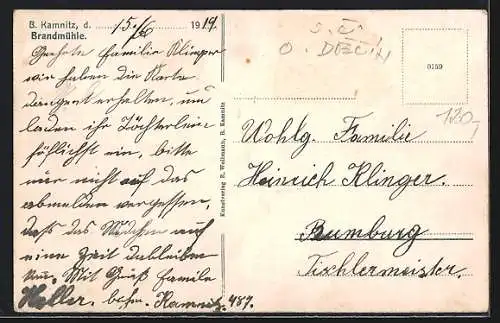 B. Kamnitz, d. 15./6 1919.
Brandmühle.
Geehrte Familie Klinger
wir haben die Karte
dankend erhalten, und
laden ihr Töchterlein
höflichst ein, bitte
nur nicht auf das
abmelden vergessen,
dass das Mädchen auch
eine Zeit dableiben
kann. Mit Gruß Familie
Heller, böhm. Kamnitz, 487.
Kunstverlag R. Weilguth, B. Kamnitz
S. Č.
O. DĚČÍN
0159
120,-
Wohlg. Familie
Heinrich Klinger.
Rumburg
Tischlermeister.